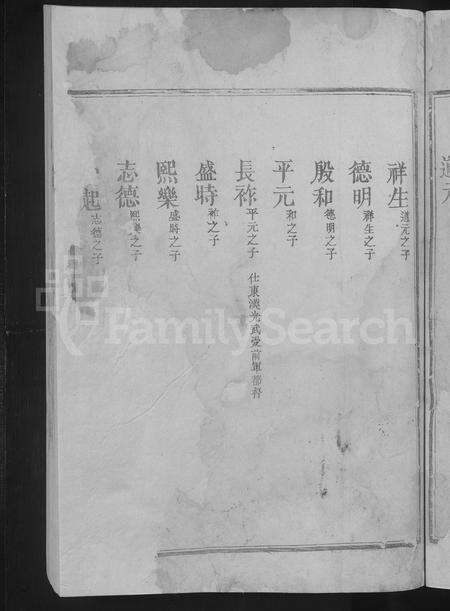 道元
祥生 道元之子
德明 祥生之子
殷和 德明之子
平元 和之子
長祚 平元之子 仕東漢光武受前軍都督
盛時 祚之子
熙樂 盛時之子
志德 熙樂之子
起 志德之子
FamilySearch